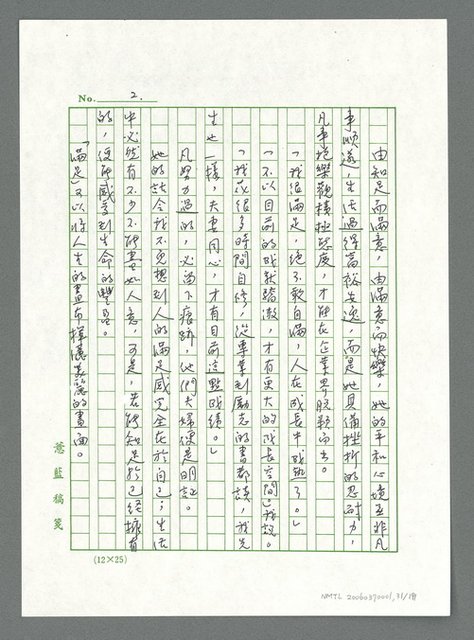 No. 2.
由知足而滿意，由滿意而快樂，她的平和心境並非凡
事順遂，生活過得富裕安逸，而是她具備挫折的忍耐力，
凡事抱樂觀積極態度，才能在企業界脫穎而出。
「我很滿足，絕不敢自滿，人在成長中成熟了。」
「不以目前的成就驕傲，才有更大的成長空間。」我說。
「我花很多時間自修，從專業到勵志的書都讀，我先
生也一樣，夫妻同心，才有目前這點成績。」
凡努力過的，必留下痕跡，他們夫婦便是明證。
她的話令我不免想到人的滿足感完全在於自己；生活
中必然有不少不能盡如人意，可是，若能知足於已經擁有
的，便能感受到生命的豐盈。
「滿足」可以將人生的畫布揮灑美麗的畫面。
薏藍稿箋
(12×25)
NMTL 20060370001, 31/18